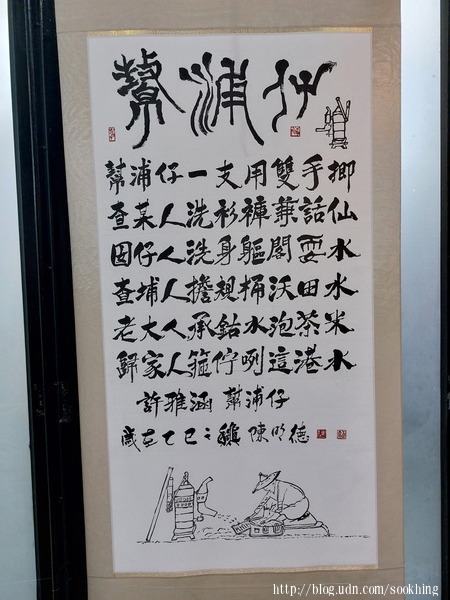 幫浦仔
幫浦仔一支用雙手揤
查某人洗衫褲兼話仙
囡仔人洗身軀閣耍水
查埔人擔規桶沃田水
老大人承鈷水泡茶米
歸家人箍佇咧這港水
許雅涵 幫浦仔
歲在乙巳之穐 陳明德
http://blog.udn.com/sookhing